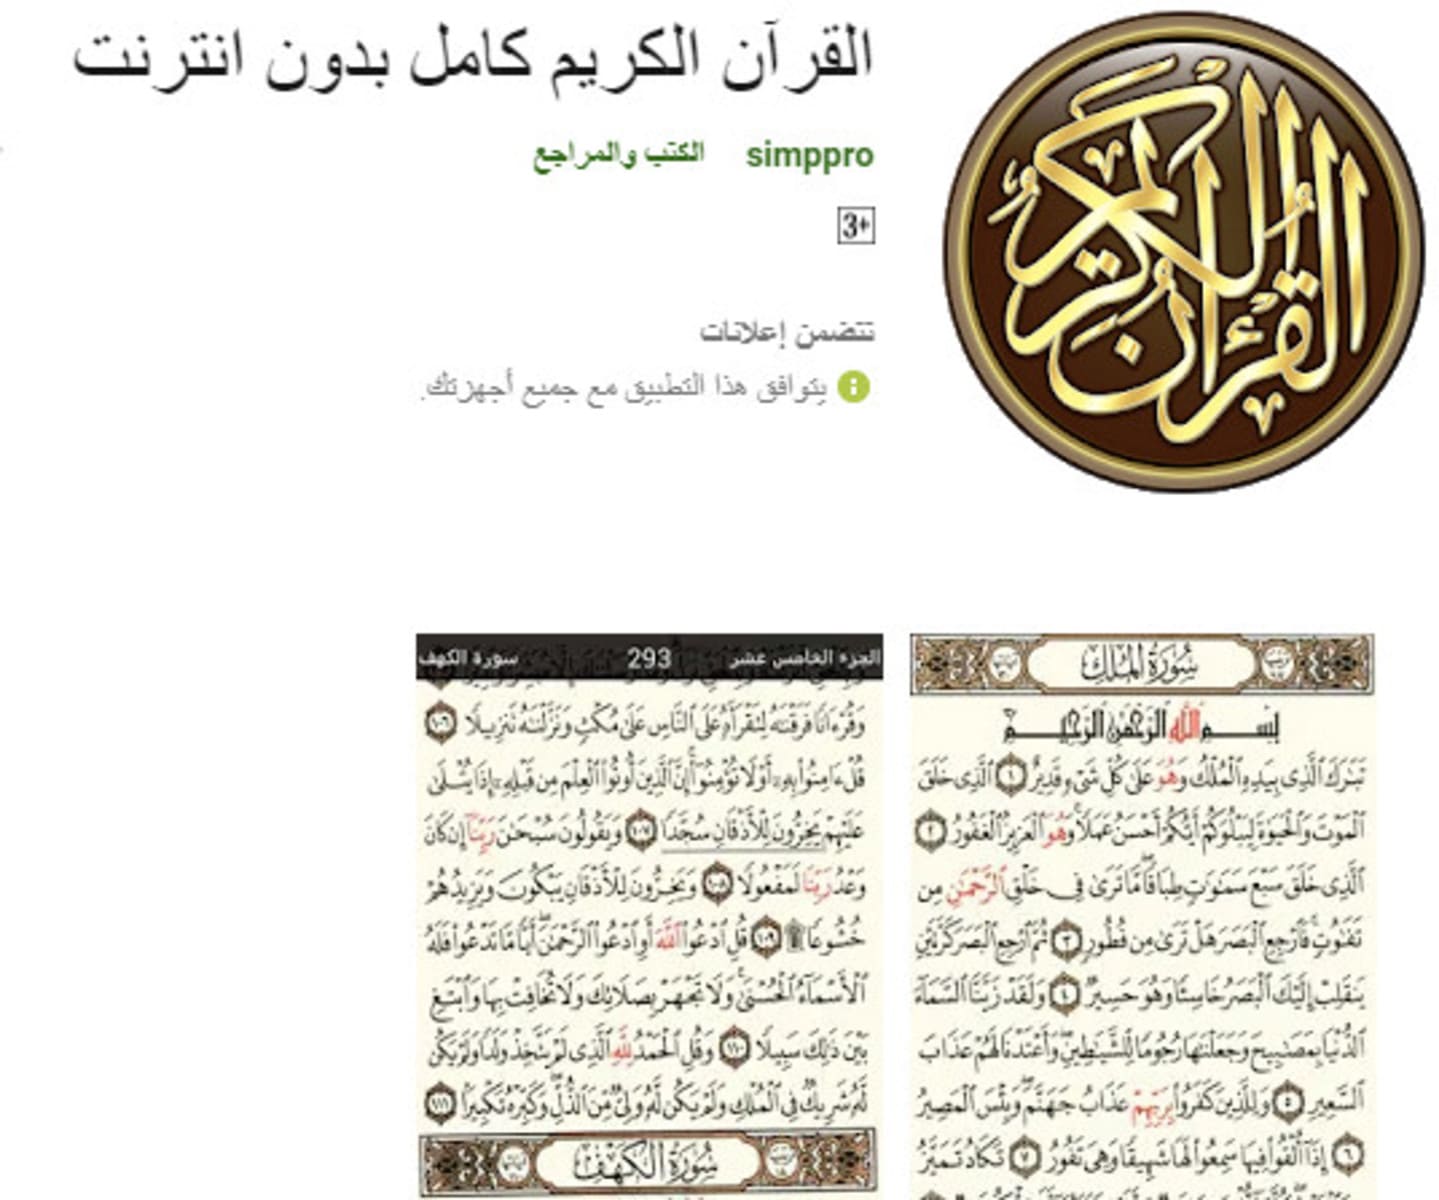 القرآن الكريم كامل بدون انترنت
simppro الكتب والمراجع
3+
تتضمن إعلانات
يتوافق هذا التطبيق مع جميع أجهزتك.
القرآن الكريم
سُورَةُ المُلْكِ
بِسْمِ اللَّهِ الرَّحْمَٰنِ الرَّحِيمِ
تَبَٰرَكَ الَّذِى بِيَدِهِ الْمُلْكُ وَهُوَ عَلَىٰ كُلِّ شَىْءٍ قَدِيرٌ ١ الَّذِى خَلَقَ
الْمَوْتَ وَالْحَيَوٰةَ لِيَبْلُوَكُمْ أَيُّكُمْ أَحْسَنُ عَمَلًا وَهُوَ الْعَزِيزُ الْغَفُورُ ٢
الَّذِى خَلَقَ سَبْعَ سَمَٰوَٰتٍ طِبَاقًا مَّا تَرَىٰ فِى خَلْقِ الرَّحْمَٰنِ مِن
تَفَٰوُتٍ فَارْجِعِ الْبَصَرَ هَلْ تَرَىٰ مِن فُطُورٍ ٣ ثُمَّ ارْجِعِ الْبَصَرَ كَرَّتَيْنِ
يَنقَلِبْ إِلَيْكَ الْبَصَرُ خَاسِئًا وَهُوَ حَسِيرٌ ٤ وَلَقَدْ زَيَّنَّا السَّمَآءَ
الدُّنْيَا بِمَصَٰبِيحَ وَجَعَلْنَٰهَا رُجُومًا لِّلشَّيَٰطِينِ وَأَعْتَدْنَا لَهُمْ عَذَابَ
السَّعِيرِ ٥ وَلِلَّذِينَ كَفَرُوا۟ بِرَبِّهِمْ عَذَابُ جَهَنَّمَ وَبِئْسَ الْمَصِيرُ
٦ إِذَآ أُلْقُوا۟ فِيهَا سَمِعُوا۟ لَهَا شَهِيقًا وَهِىَ تَفُورُ ٧ تَكَادُ تَمَيَّزُ
الجزء الخامس عشر 293 سورة الكهف
وَقُرْءَانًا فَرَقْنَٰهُ لِتَقْرَأَهُۥ عَلَى النَّاسِ عَلَىٰ مُكْثٍ وَنَزَّلْنَٰهُ تَنزِيلًا ١٠٦
قُلْ ءَامِنُوا۟ بِهِۦٓ أَوْ لَا تُؤْمِنُوٓا۟ إِنَّ الَّذِينَ أُوتُوا۟ الْعِلْمَ مِن قَبْلِهِۦٓ إِذَا يُتْلَىٰ
عَلَيْهِمْ يَخِرُّونَ لِلْأَذْقَانِ سُجَّدًا ١٠٧ وَيَقُولُونَ سُبْحَٰنَ رَبِّنَآ إِن كَانَ
وَعْدُ رَبِّنَا لَمَفْعُولًا ١٠٨ وَيَخِرُّونَ لِلْأَذْقَانِ يَبْكُونَ وَيَزِيدُهُمْ
خُشُوعًا ۩ ١٠٩ قُلِ ادْعُوا۟ اللَّهَ أَوِ ادْعُوا۟ الرَّحْمَٰنَ أَيًّا مَّا تَدْعُوا۟ فَلَهُ
الْأَسْمَآءُ الْحُسْنَىٰ وَلَا تَجْهَرْ بِصَلَاتِكَ وَلَا تُخَافِتْ بِهَا وَابْتَغِ
بَيْنَ ذَٰلِكَ سَبِيلًا ١١٠ وَقُلِ الْحَمْدُ لِلَّهِ الَّذِى لَمْ يَتَّخِذْ وَلَدًا وَلَمْ يَكُن
لَّهُۥ شَرِيكٌ فِى الْمُلْكِ وَلَمْ يَكُن لَّهُۥ وَلِىٌّ مِّنَ الذُّلِّ وَكَبِّرْهُ تَكْبِيرًا ١١١
سُورَةُ الكَهْفِ